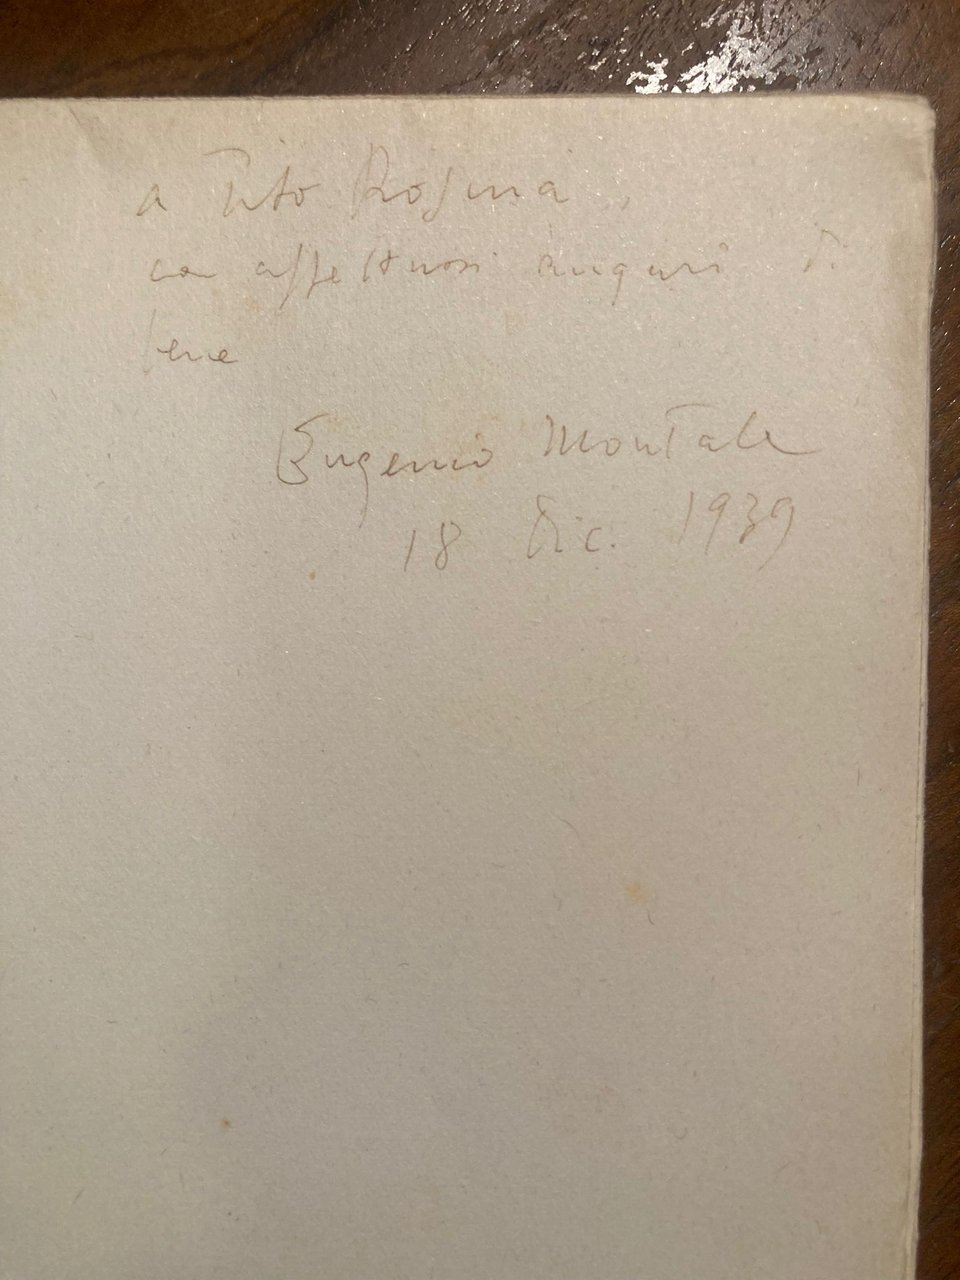 a Tito Rosina,
con affettuosi auguri di
bene
Eugenio Montale
18 Dic. 1939